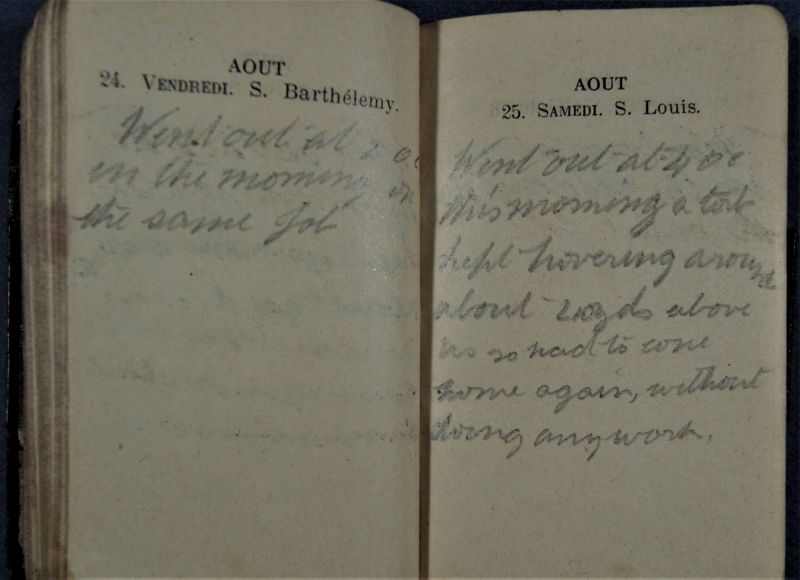 AOUT
24. VENDREDI. S. Barthélemy.
Went out at 2
in the morning on
the same Job
AOUT
25. SAMEDI. S. Louis.
Went out at 4 oc
this morning a
kept hovering around
about yds above
us so had to come
home again, without
doing any work.